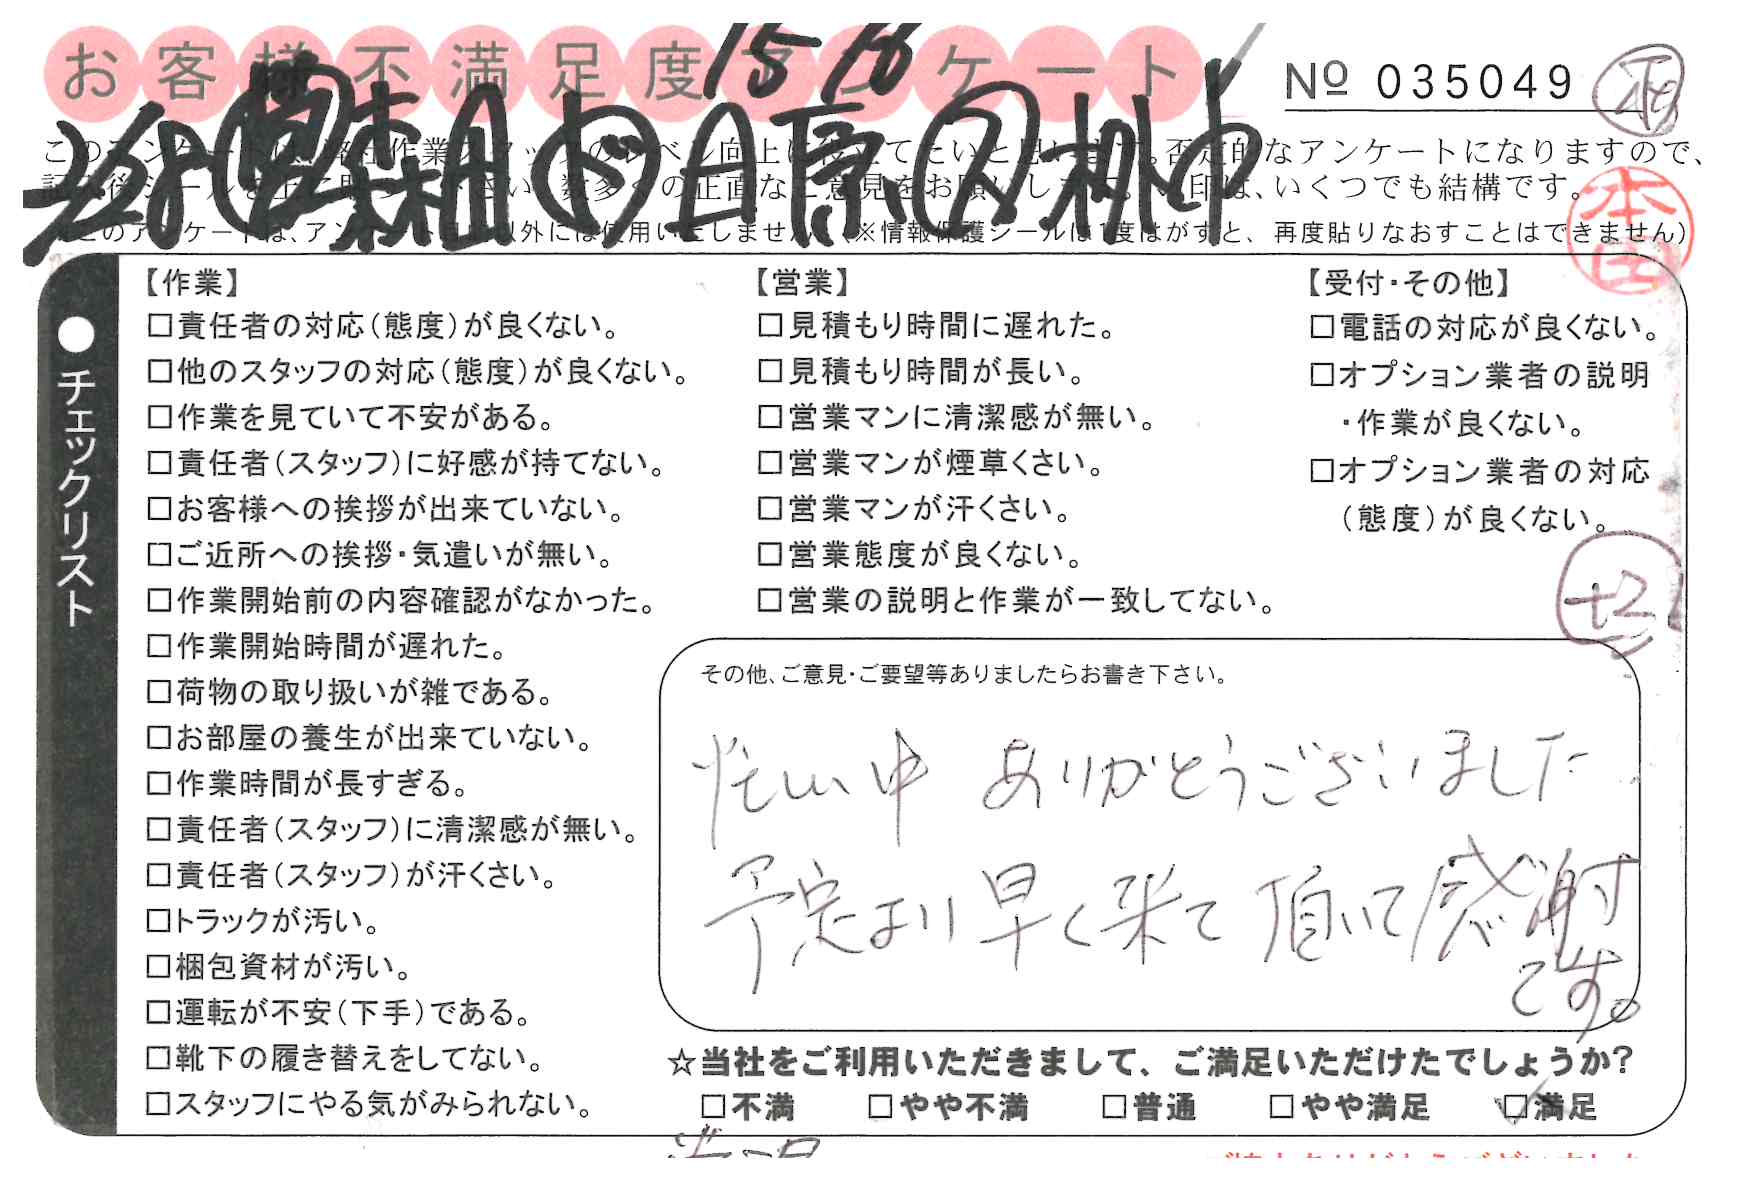 お客様不満足度アンケート
15 16
№ 035049
このアンケートは、弊社作業スタッフのレベル向上に役立てたいと思います。否定的なアンケートになりますので、
記入後シールを上に貼って下さい。数多くの正直なご意見をお願いします。 印は、いくつでも結構です。
このアンケートは、アンケート目的以外には使用いたしません。(※情報保護シールは1度はがすと、再度貼りなおすことはできません)
本田
●チェックリスト
【作業】
□責任者の対応(態度)が良くない。
□他のスタッフの対応(態度)が良くない。
□作業を見ていて不安がある。
□責任者(スタッフ)に好感が持てない。
□お客様への挨拶が出来ていない。
□ご近所への挨拶・気遣いが無い。
□作業開始前の内容確認がなかった。
□作業開始時間が遅れた。
□荷物の取り扱いが雑である。
□お部屋の養生が出来ていない。
□作業時間が長すぎる。
□責任者(スタッフ)に清潔感が無い。
□責任者(スタッフ)が汗くさい。
□トラックが汚い。
□梱包資材が汚い。
□運転が不安(下手)である。
□靴下の履き替えをしてない。
□スタッフにやる気がみられない。
【営業】
□見積もり時間に遅れた。
□見積もり時間が長い。
□営業マンに清潔感が無い。
□営業マンが煙草くさい。
□営業マンが汗くさい。
□営業態度が良くない。
□営業の説明と作業が一致してない。
【受付・その他】
□電話の対応が良くない。
□オプション業者の説明
・作業が良くない。
□オプション業者の対応
(態度)が良くない。
その他、ご意見・ご要望等ありましたらお書き下さい。
忙しい中 ありがとうございました
予定より早く来て頂いて感謝
です。
☆当社をご利用いただきまして、ご満足いただけたでしょうか?
□不満 □やや不満 □普通 □やや満足 □満足